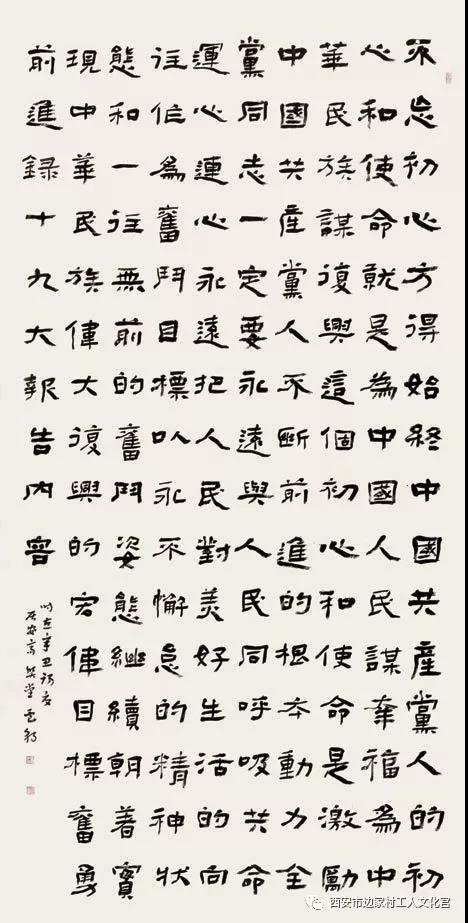 不忘初心方得始終中國共產黨人的初
心和使命就是為中國人民謀幸福為中
華民族謀復興這個初心和使命是激勵
中國共產黨人不斷前進的根本動力全
黨同志一定要永遠與人民同呼吸共命
運心連心永遠把人民對美好生活的向
往作為奮鬥目標以永不懈怠的精神狀
態和一往無前的奮鬥姿態繼續朝着實
現中華民族偉大復興的宏偉目標奮勇
前進錄十九大報告內容
辛丑
西安市边家村工人文化宫